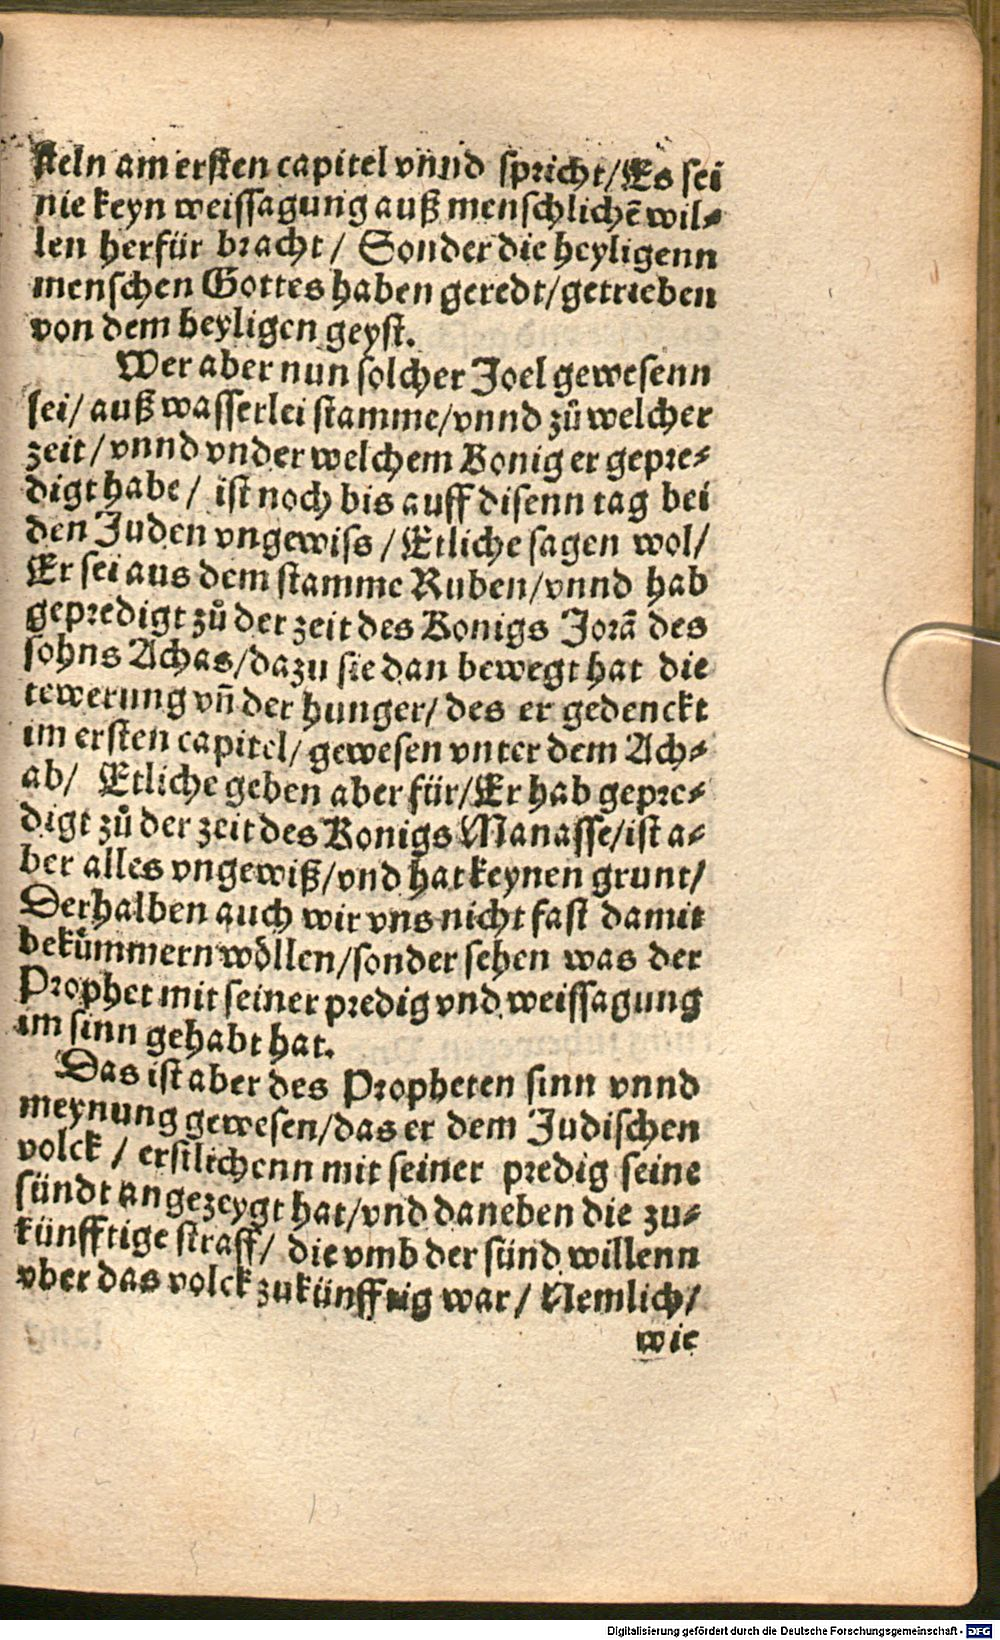 steln am ersten capitel vnnd spricht/Es sei
nie keyn weissagung auß menschlichẽ wil⸗
len herfür bracht/ Sonder die heyligenn
menschen Gottes haben geredt/getrieben
von dem heyligen geyst.
Wer aber nun solcher Joel gewesenn
sei/ auß wasserlei stamme/vnnd zů welcher
zeit/vnnd vnder welchem Konig er gepre⸗
digt habe/ ist noch bis auff disenn tag bei
den Juden vngewiss/Etliche sagen wol/
Er sei aus dem stamme Ruben/vnnd hab
gepredigt zů der zeit des Konigs Jorã des
sohns Achas/dazu sie dan bewegt hat die
tewerung vñ der hunger/des er gedenckt
im ersten capitel/gewesen vnter dem Ach⸗
ab/ Etliche geben aber für/Er hab gepre⸗
digt zů der zeit des Konigs Manasse/ist a⸗
ber alles vngewiß/vnd hat keynen grunt/
Derhalben auch wir vns nicht fast damit
bekümmern wöllen/sonder sehen was der
Prophet mit seiner predig vnd weissagung
im sinn gehabt hat.
Das ist aber des Propheten sinn vnnd
meynung gewesen/das er dem Judischen
volck/ erstlichenn mit seiner predig seine
sündt angezeygt hat/vnd daneben die zu⸗
künfftige straff/ die vmb der sünd willenn
vber das volck zukünfftig war/Nemlich/
wie
Digitalisierung gefördert durch die Deutsche Forschungsgemeinschaft - DFG